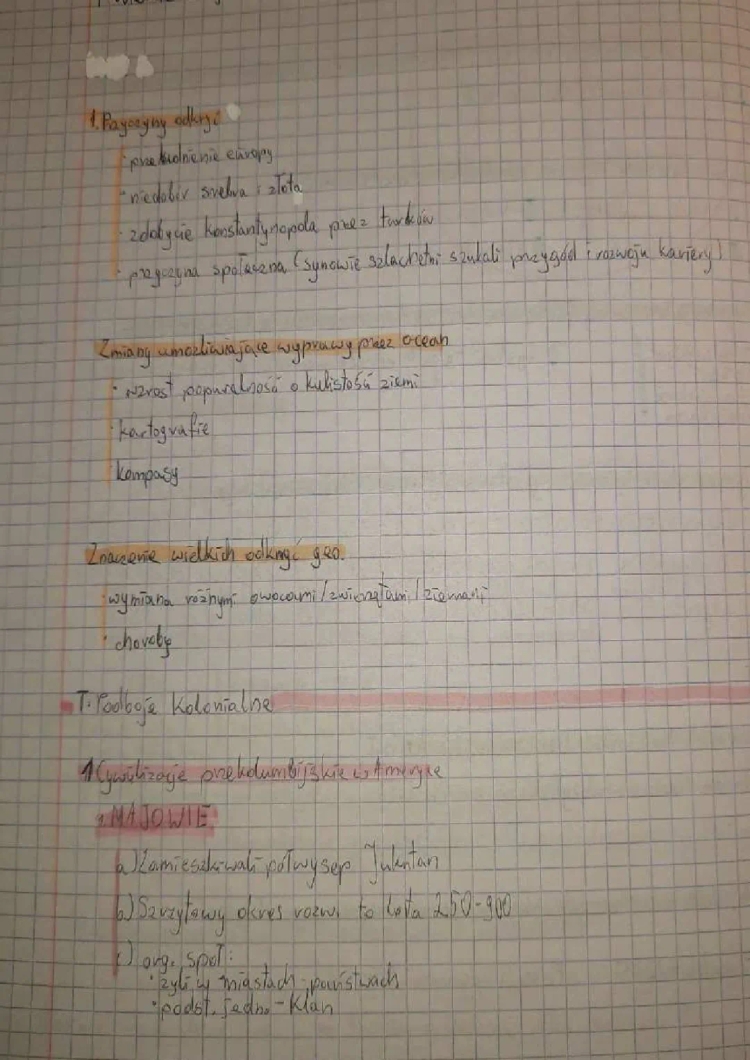 1. Przyczyny odkryć
· przeludnienie europy
· niedobór srebra i złota
· zdobycie konstantynopola przez turków
· przyczyna społeczna (synowie szlachetni szukali przygód i rozwoju kariery)
Zmiany umożliwiające wyprawy przez ocean
· wzrost popuralności o kulistość ziemi
· kartografie
· kompasy
Znaczenie wielkich odkryć geo.
· wymiana różnymi owocami/zwierzętami/ziemiami
· choroby
T: Podboje Kolonialne
1 Cywilizacje prekolumbijskie w Ameryce
1. MAJOWIE
a) Zamieszkiwali półwysep Jukatan
b) Szczytowy okres rozw. to lata 250-900
c) org. społ:
· żyli w miastach-państwach
· podst. jedno-Klan